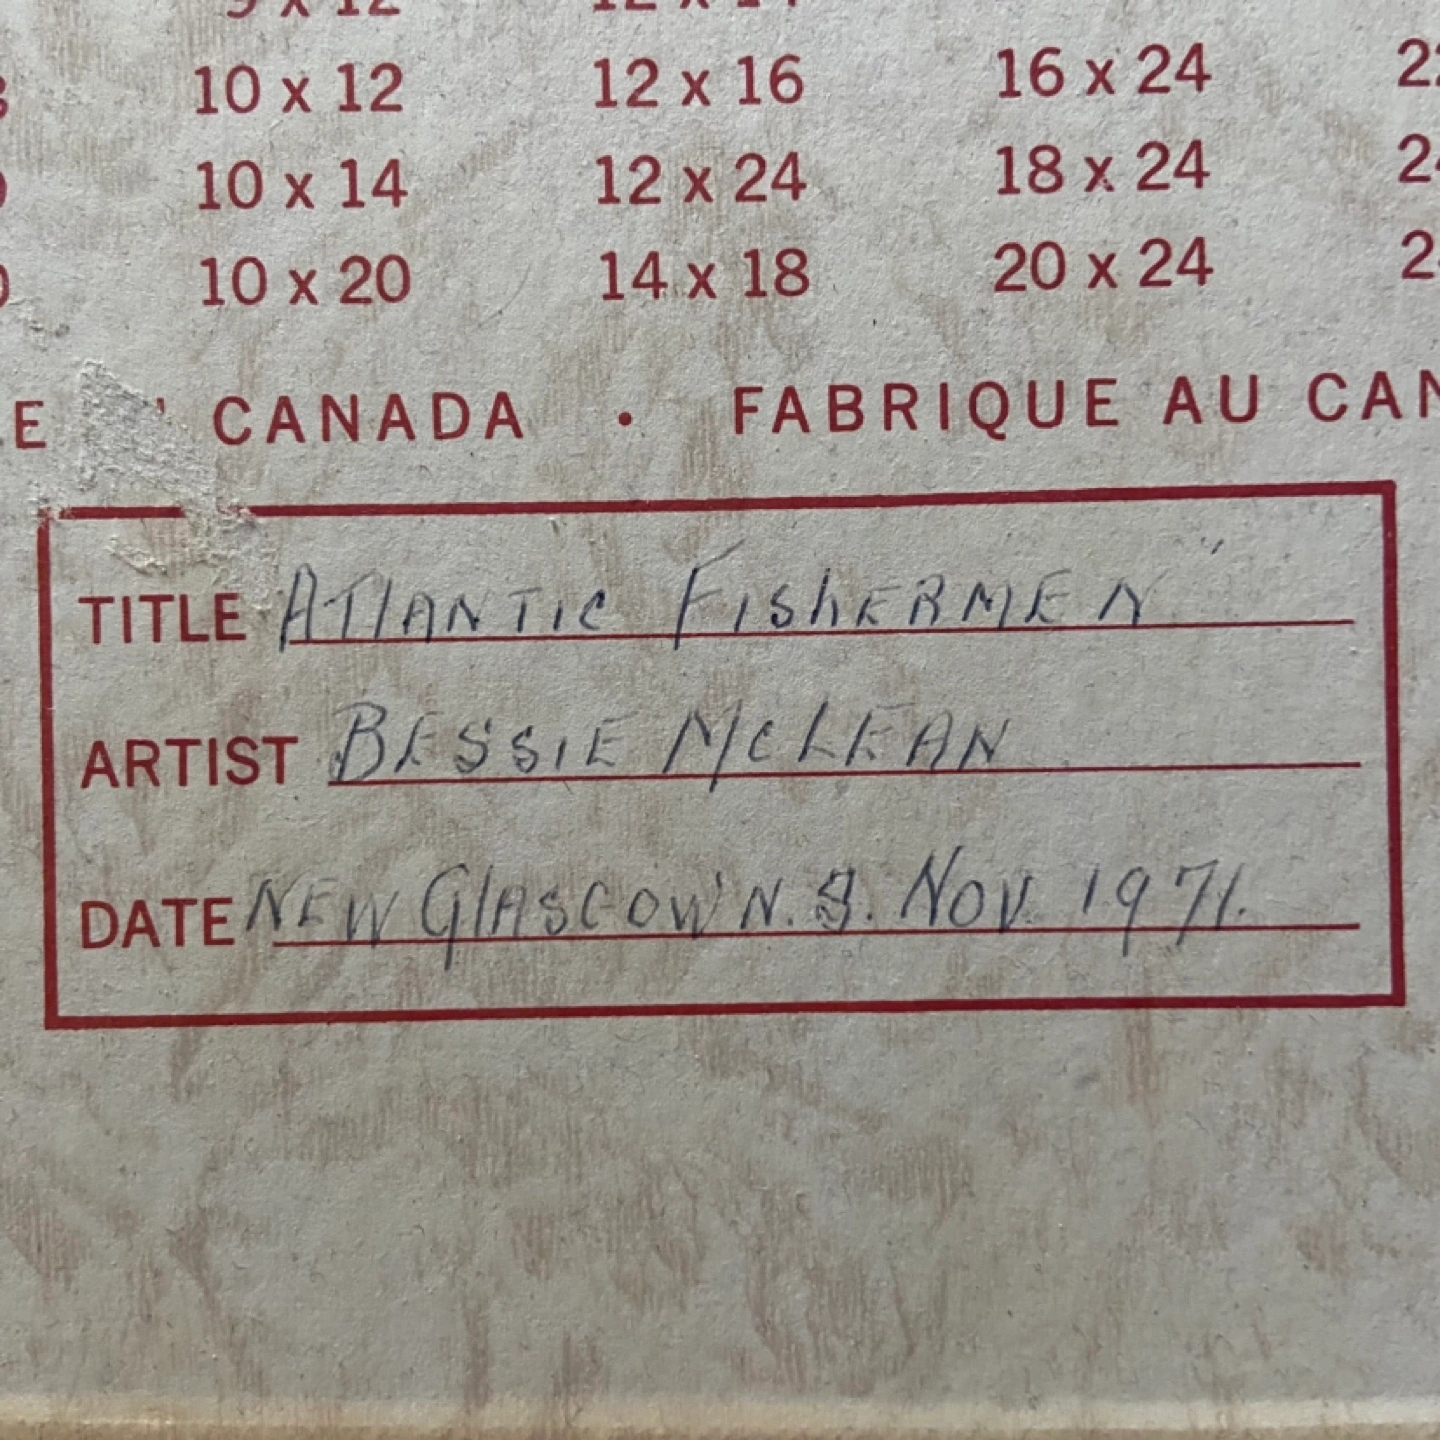 9 x 12 12 x 14
10 x 12 12 x 16 16 x 24
10 x 14 12 x 24 18 x 24
10 x 20 14 x 18 20 x 24
CANADA • FABRIQUE AU CAN
TITLE ATLANTIC FISHERMEN"
ARTIST BESSIE McLEAN
DATE NEW GLASCOW N.S. NOV 1971.